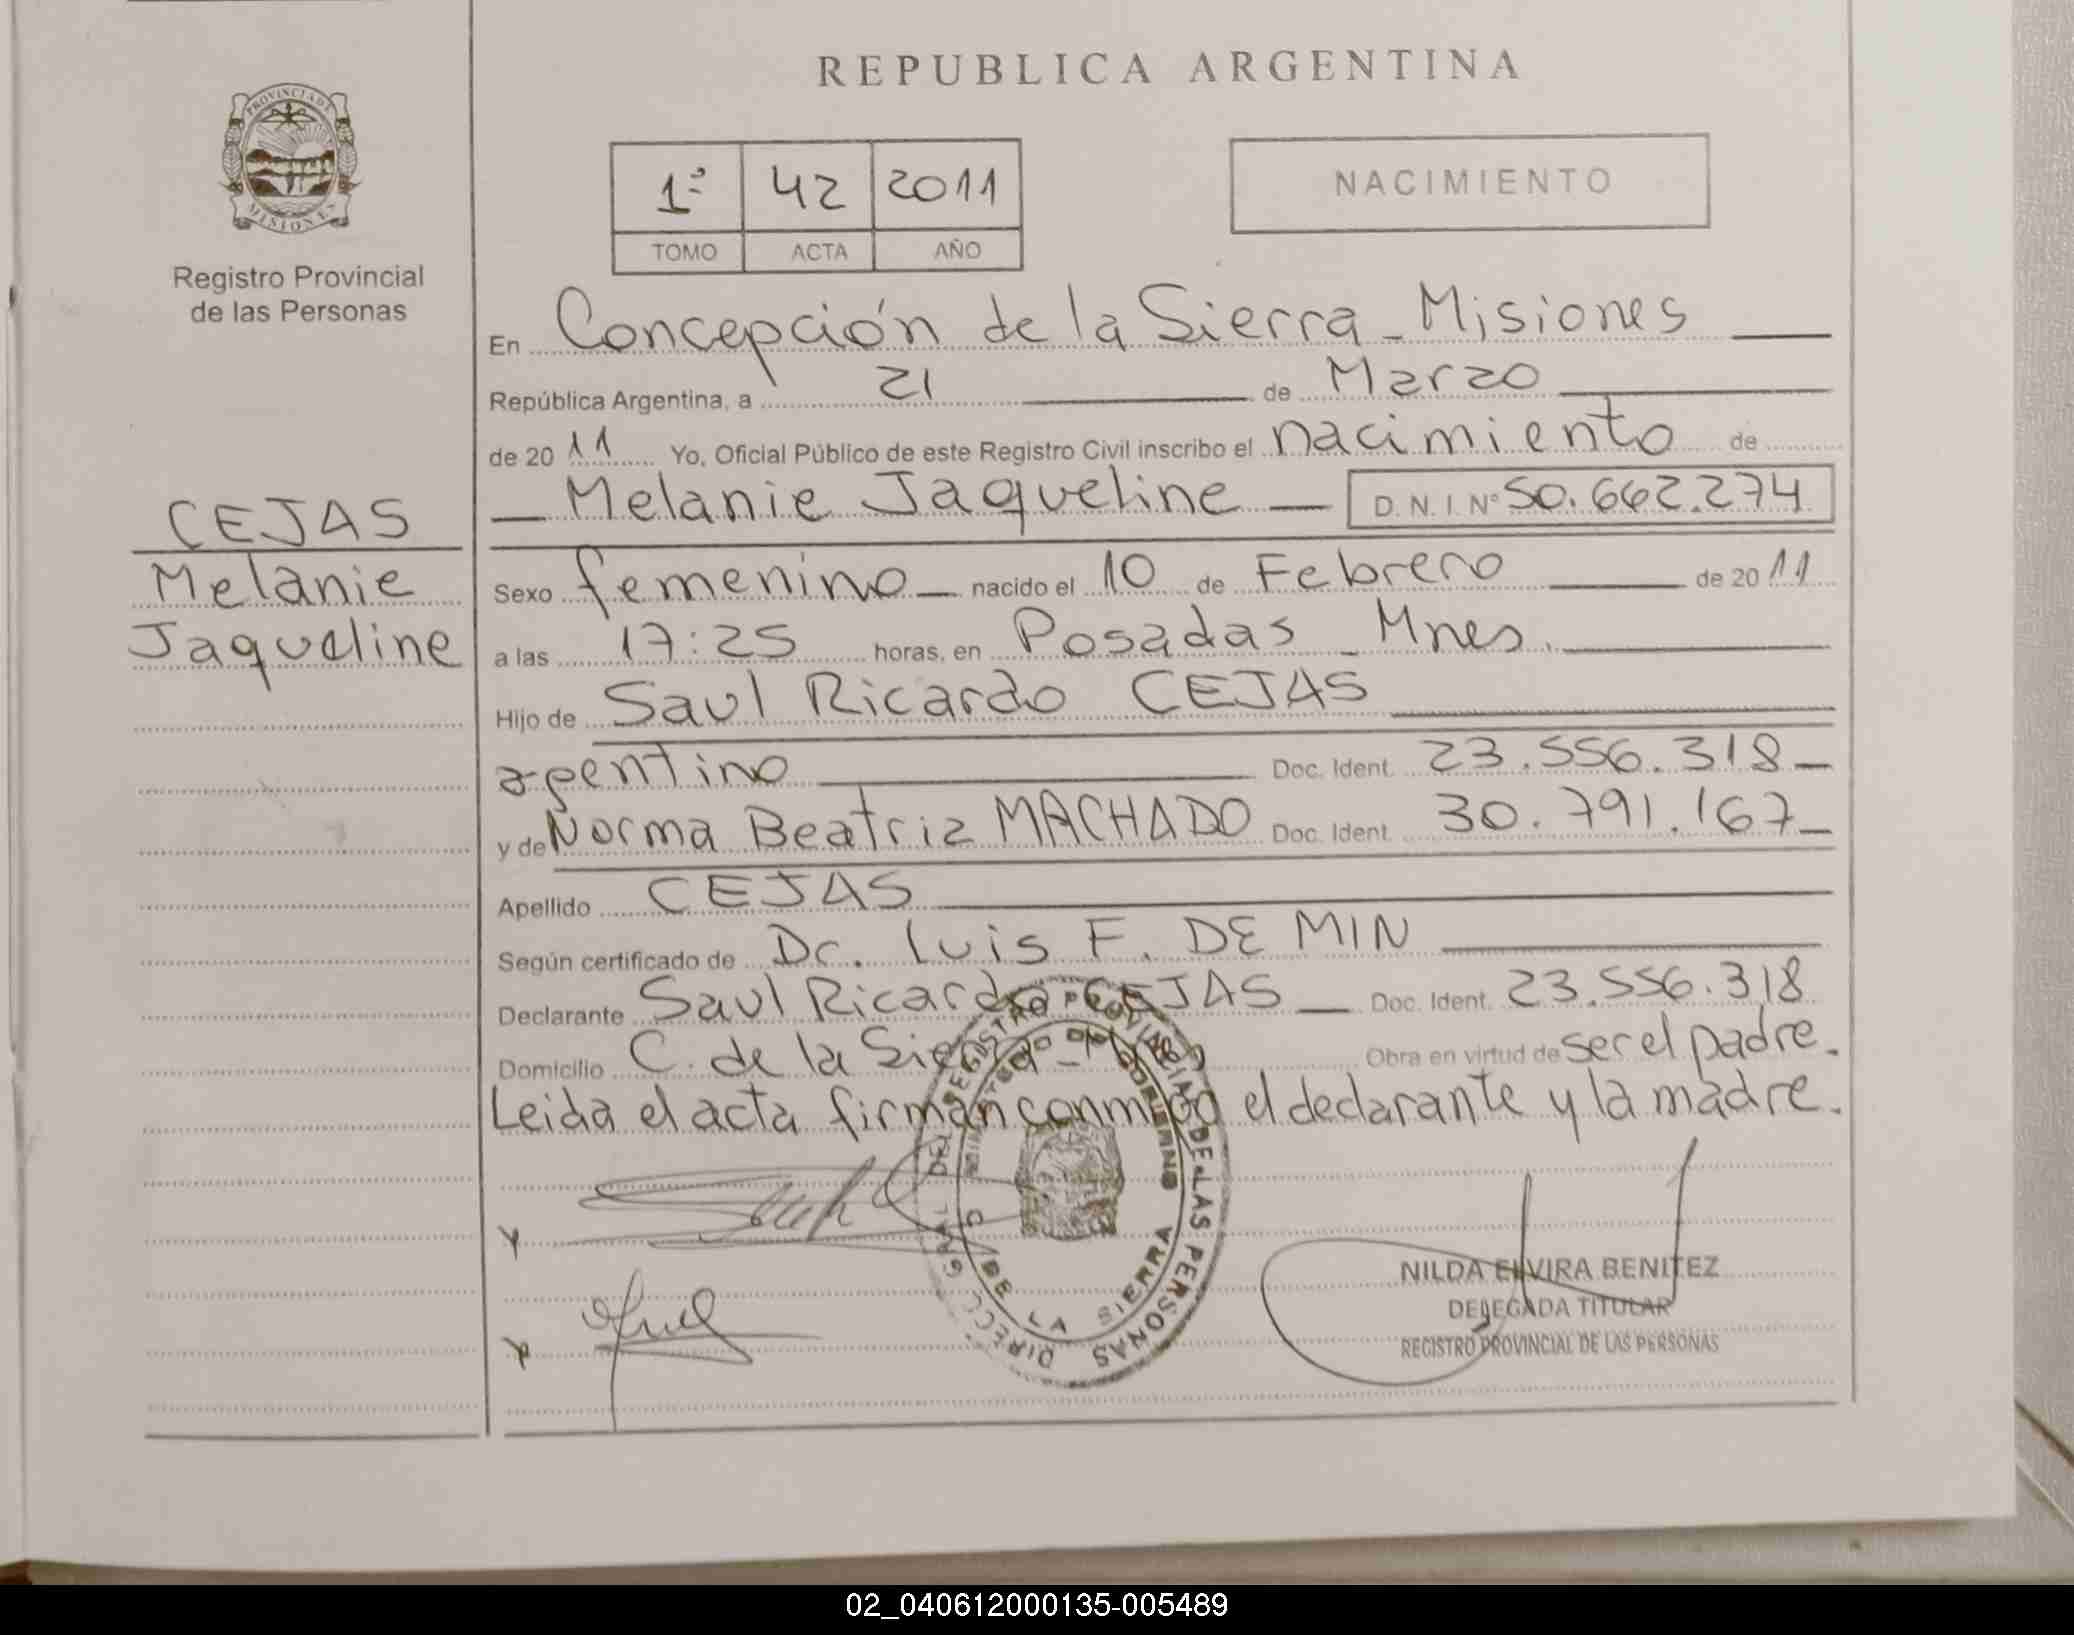 REPUBLICA ARGENTINA
PROVINCIA DE
MISIONES
Registro Provincial
de las Personas
1º 42 2011
TOMO ACTA AÑO
NACIMIENTO
CEJAS
Melanie
Jaqueline
En Concepción de la Sierra - Misiones
República Argentina, a 21 de Marzo
de 2011 Yo, Oficial Público de este Registro Civil inscribo el nacimiento de
Melanie Jaqueline D.N.I. Nº 50.662.274
Sexo femenino nacido el 10 de Febrero de 2011
a las 17:25 horas, en Posadas - Mnes.
Hijo de Saul Ricardo CEJAS
argentino Doc. Ident. 23.556.318
y de Norma Beatriz MACHADO Doc. Ident. 30.791.167
Apellido CEJAS
Según certificado de Dr. Luis F. DE MIN
Declarante Saul Ricardo CEJAS Doc. Ident. 23.556.318
Domicilio C. de la Sierra - Mnes Obra en virtud de ser el padre.
Leida el acta firman conmigo el declarante y la madre.
DIRECC. GRAL. DEL REGISTRO PROVINCIAL DE LAS PERSONAS
DE LA SIERRA
NILDA ELVIRA BENITEZ
DELEGADA TITULAR
REGISTRO PROVINCIAL DE LAS PERSONAS
02_040612000135-005489